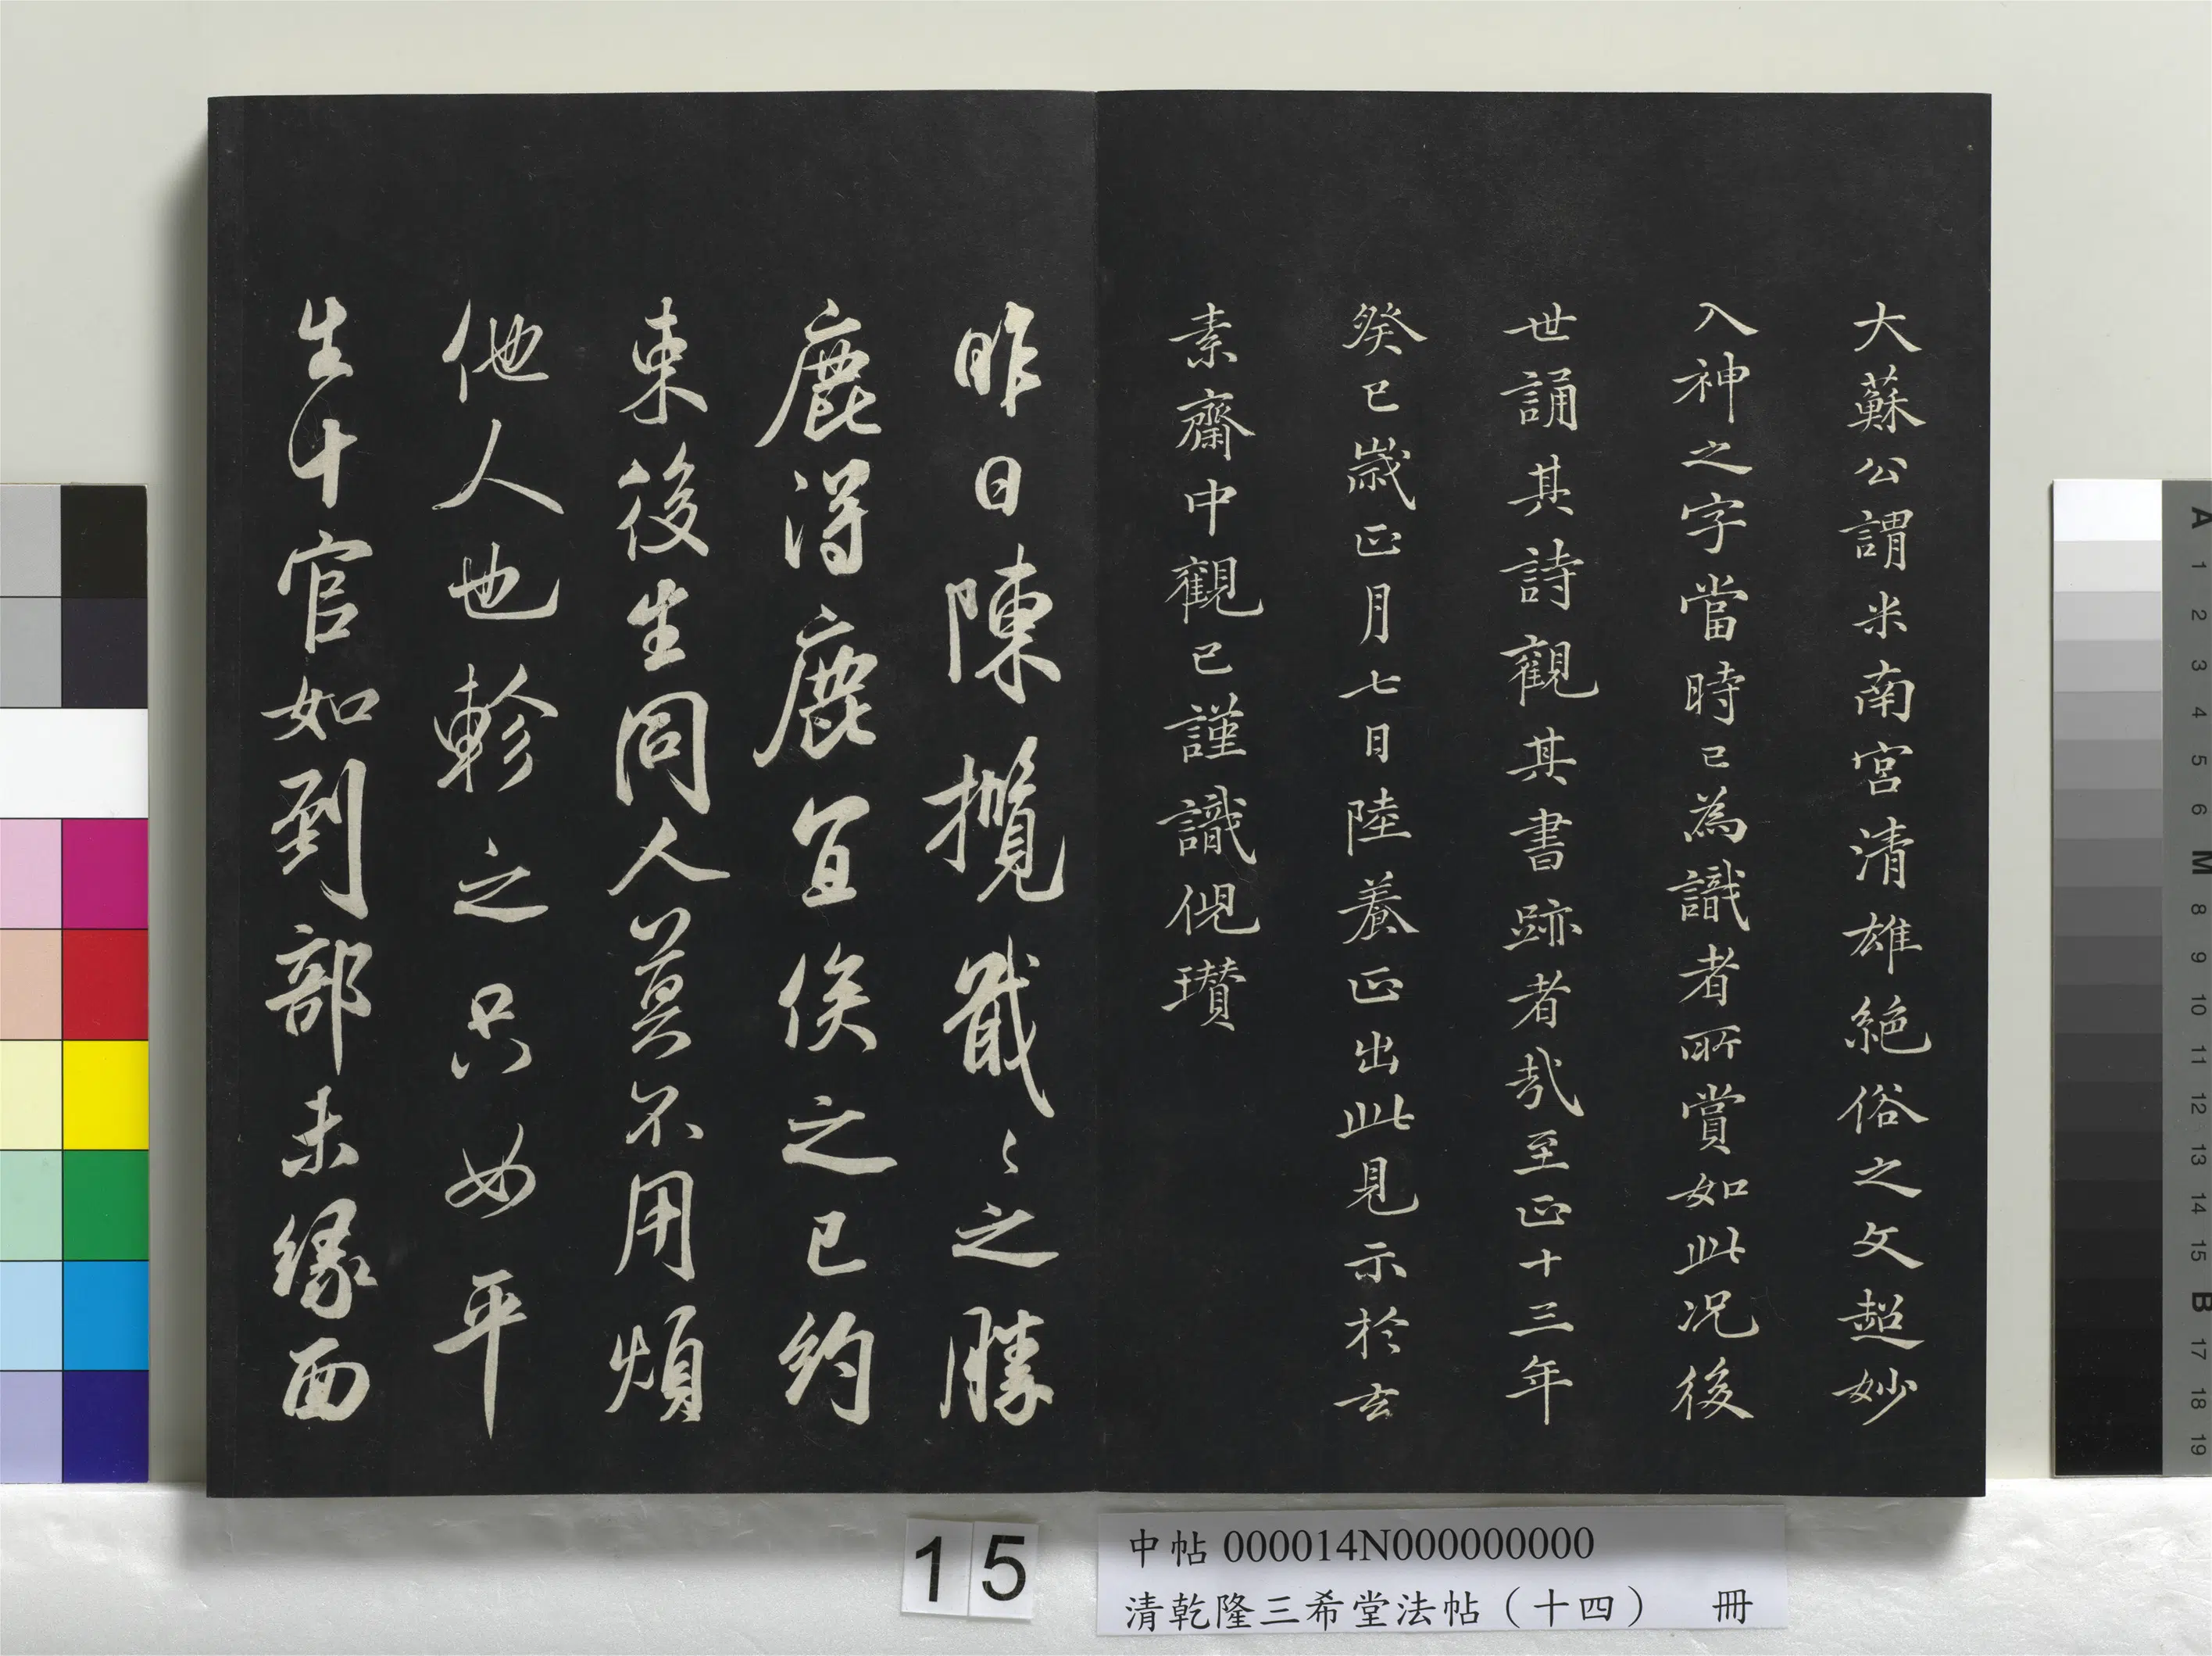 大蘇公謂米南宮清雄絕俗之文超妙
入神之字當時已為識者所賞如此况後
世誦其詩觀其書跡者哉至正十三年
癸巳歲正月七日陸養正出此見示於玄
素齋中觀已謹識倪瓚
昨日陳攬戢戢之勝
鹿得鹿宜俟之已約
束後生同人莫不用煩
他人也軫之只如平
生十官如到部未緣面
15
中帖 000014N000000000
清乾隆三希堂法帖（十四） 冊
A 1 2 3 4 5 6 M 8 9 10 11 12 13 14 15 B 17 18 19